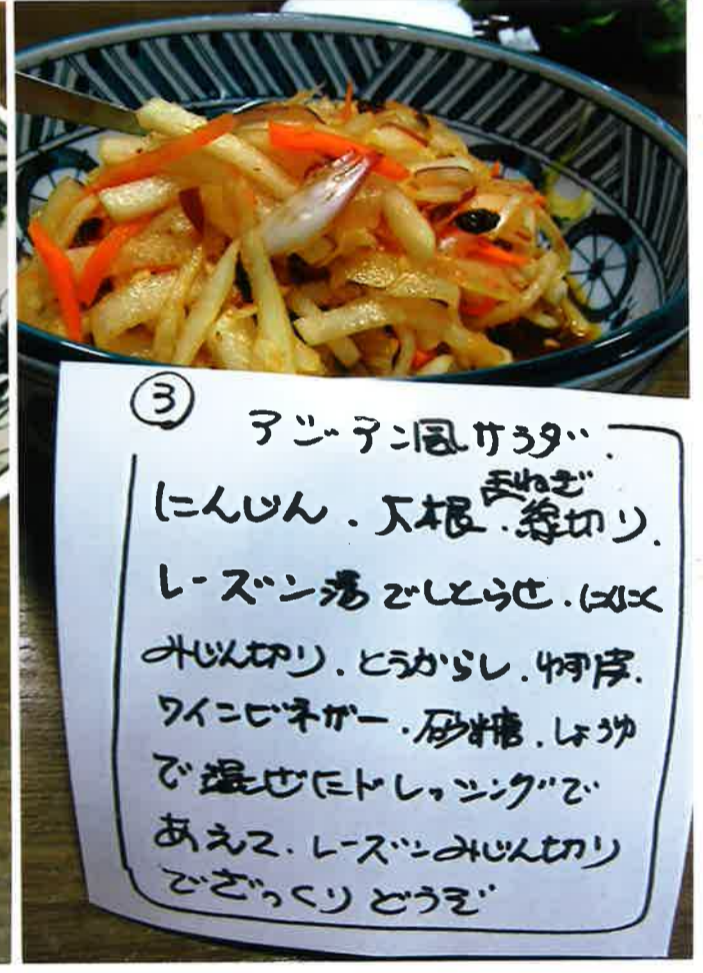 ③
アジアン風サラダ.
玉ねぎ
にんじん.大根.線切り.
レーズン湯でしとらせ.にんにく
みじん切り.とうからし.ゆず皮.
ワインビネガー.砂糖.しょうゆ
で混ぜたドレッシングで
あえて.レーズンみじん切り
でざっくりどうぞ